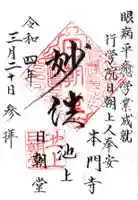 眼病平癒学業成就
行学院日朝上人奉安
本門寺
妙法
池上
日朝堂
令和四年
三月二十日参拝